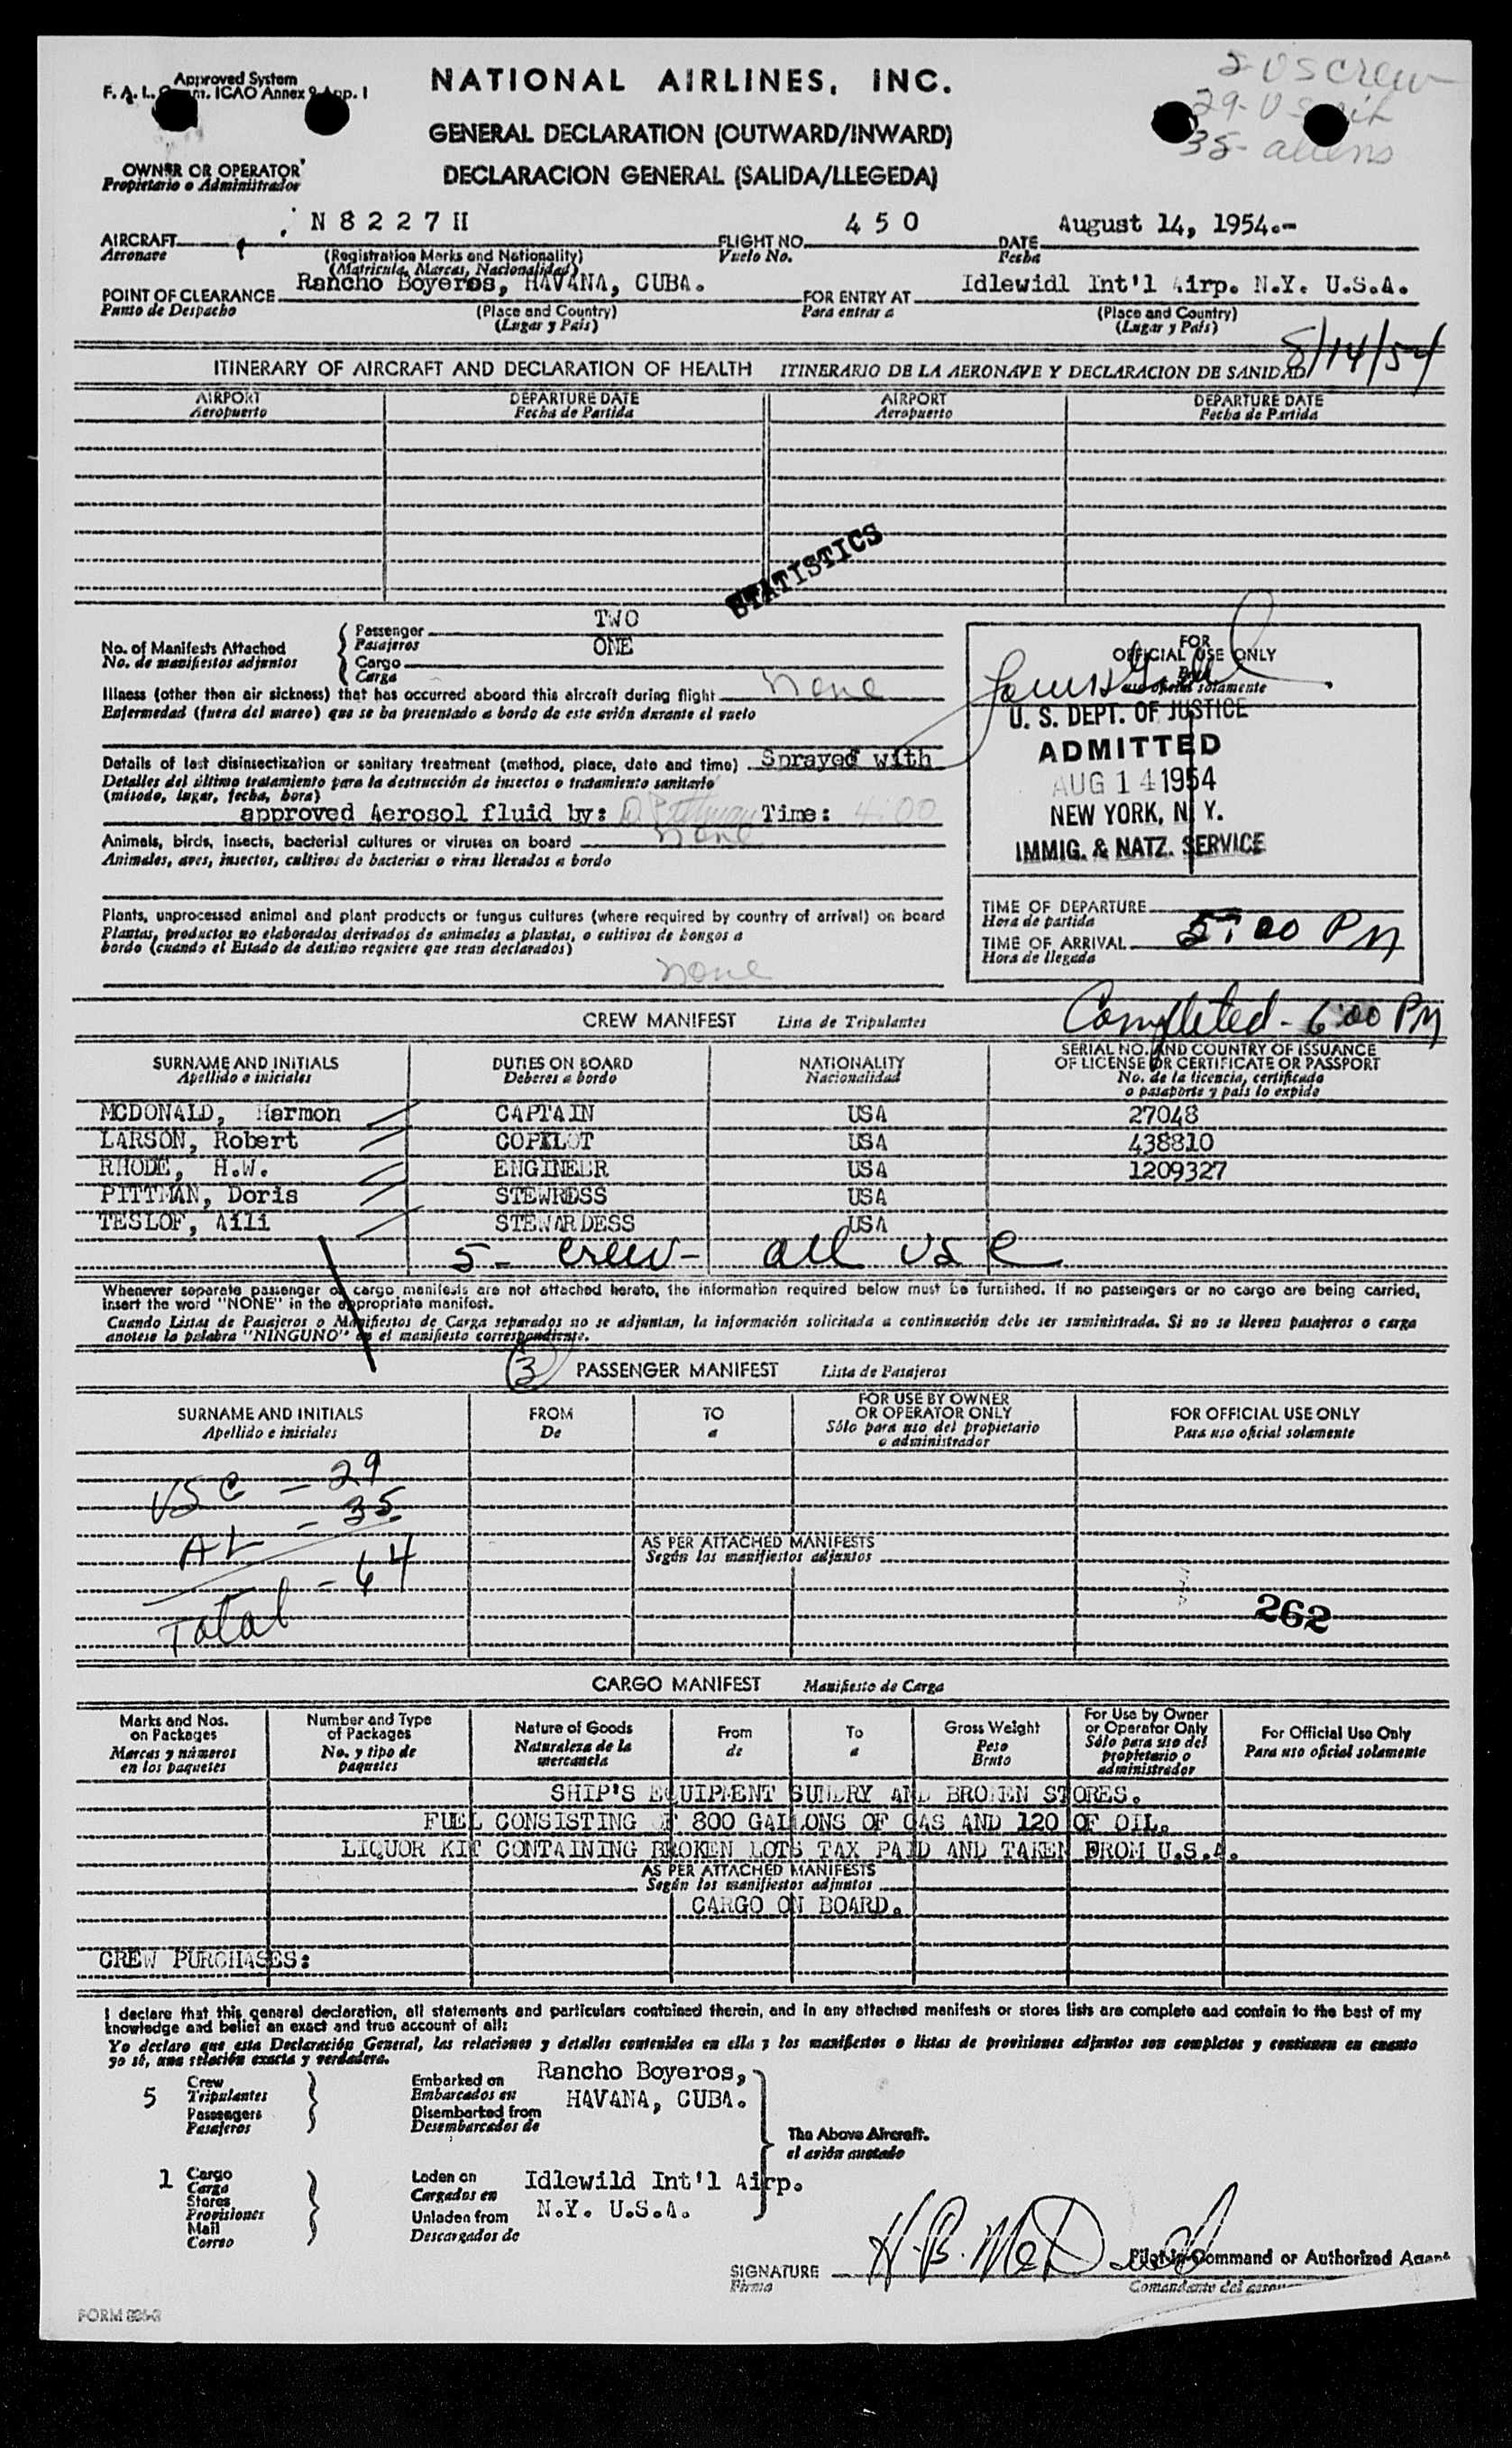 Approved System
F. A. L. Comm. ICAO Annex 9 App. I
NATIONAL AIRLINES, INC.
GENERAL DECLARATION (OUTWARD/INWARD)
DECLARACION GENERAL (SALIDA/LLEGEDA)
US crew
29-US
35-aliens
OWNER OR OPERATOR
Propietario o Administrador
AIRCRAFT N 8 2 2 7 H FLIGHT NO. 4 5 0 DATE August 14, 1954.-
Aeronave (Registration Marks and Nationality) Vuelo No. Fecha
(Matricula, Marcas, Nacionalidad)
POINT OF CLEARANCE Rancho Boyeros, HAVANA, CUBA. FOR ENTRY AT Idlewidl Int'l Airp. N.Y. U.S.A.
Punto de Despacho (Place and Country) Para entrar a (Place and Country)
(Lugar y País) (Lugar y País)
8/14/54
ITINERARY OF AIRCRAFT AND DECLARATION OF HEALTH ITINERARIO DE LA AERONAVE Y DECLARACION DE SANIDAD
AIRPORT DEPARTURE DATE AIRPORT DEPARTURE DATE
Aeropuerto Fecha de Partida Aeropuerto Fecha de Partida
STATISTICS
No. of Manifests Attached Passenger TWO
No. de manifiestos adjuntos Pasajeros ONE
Cargo
Carga
Illness (other than air sickness) that has occurred aboard this aircraft during flight none
Enfermedad (fuera del mareo) que se ha presentado a bordo de este avión durante el vuelo
Details of last disinsectization or sanitary treatment (method, place, date and time) Sprayed with
Detalles del último tratamiento para la destrucción de insectos o tratamiento sanitario
(método, lugar, fecha, hora)
approved Aerosol fluid by: D Pittman Time: 4:00
Animals, birds, insects, bacterial cultures or viruses on board none
Animales, aves, insectos, cultivos de bacterias o virus llevados a bordo
Plants, unprocessed animal and plant products or fungus cultures (where required by country of arrival) on board
Plantas, productos no elaborados derivados de animales a plantas, o cultivos de hongos a
bordo (cuando el Estado de destino requiere que sean declarados)
none
FOR
OFFICIAL USE ONLY
uso oficial solamente
U. S. DEPT. OF JUSTICE
ADMITTED
AUG 14 1954
NEW YORK, N. Y.
IMMIG. & NATZ. SERVICE
TIME OF DEPARTURE
Hora de partida
TIME OF ARRIVAL 5:00 PM
Hora de llegada
CREW MANIFEST Lista de Tripulantes Completed - 6:00 PM
SURNAME AND INITIALS DUTIES ON BOARD NATIONALITY SERIAL NO. AND COUNTRY OF ISSUANCE
Apellido e iniciales Deberes a bordo Nacionalidad OF LICENSE OR CERTIFICATE OR PASSPORT
No. de la licencia, certificado
o pasaporte y país lo expide
MCDONALD, Harmon CAPTAIN USA 27048
LARSON, Robert COPILOT USA 438810
RHODE, H.W. ENGINEER USA 1209327
PITTMAN, Doris STEWRDSS USA
TESLOF, Aili STEWARDESS USA
5- crew- all US C
Whenever separate passenger or cargo manifests are not attached hereto, the information required below must be furnished. If no passengers or no cargo are being carried,
insert the word "NONE" in the appropriate manifest.
Cuando Listas de Pasajeros o Manifiestos de Carga separados no se adjuntan, la información solicitada a continuación debe ser suministrada. Si no se lleven pasajeros o carga
anotese la palabra "NINGUNO" en el manifiesto correspondiente.
3 PASSENGER MANIFEST Lista de Pasajeros
SURNAME AND INITIALS FROM TO FOR USE BY OWNER FOR OFFICIAL USE ONLY
Apellido e iniciales De a OR OPERATOR ONLY Para uso oficial solamente
Sólo para uso del propietario
o administrador
USC - 29
AL - 35
Total - 64
AS PER ATTACHED MANIFESTS
Según los manifiestos adjuntos
262
CARGO MANIFEST Manifiesto de Carga
Marks and Nos. Number and Type Nature of Goods From To Gross Weight For Use by Owner For Official Use Only
on Packages of Packages Naturaleza de la de a Peso or Operator Only Para uso oficial solamente
Marcas y números No. y tipo de mercancía Bruto Sólo para uso del
en los paquetes paquetes propietario o
administrador
SHIP'S EQUIPMENT SUNDRY AND BROKEN STORES.
FUEL CONSISTING OF 800 GALLONS OF GAS AND 120 OF OIL.
LIQUOR KIT CONTAINING BROKEN LOTS TAX PAID AND TAKEN FROM U.S.A.
AS PER ATTACHED MANIFESTS
Según los manifiestos adjuntos
CARGO ON BOARD.
CREW PURCHASES:
I declare that this general declaration, all statements and particulars contained therein, and in any attached manifests or stores lists are complete and contain to the best of my
knowledge and belief an exact and true account of all:
Yo declaro que esta Declaración General, las relaciones y detalles contenidos en ella y los manifiestos o listas de provisiones adjuntos son completos y contienen en cuanto
yo sé, una relación exacta y verdadera.
5 Crew Embarked on Rancho Boyeros,
Tripulantes Embarcados en HAVANA, CUBA.
Passengers Disembarked from
Pasajeros Desembarcados de
The Above Aircraft.
el avión anotado
1 Cargo Laden on Idlewild Int'l Airp.
Carga Cargados en
Stores Unladen from N.Y. U.S.A.
Provisiones Descargados de
Mail
Correo
SIGNATURE H. B. McDonald Pilot-in-Command or Authorized Agent
Firma Comandante del
FORM